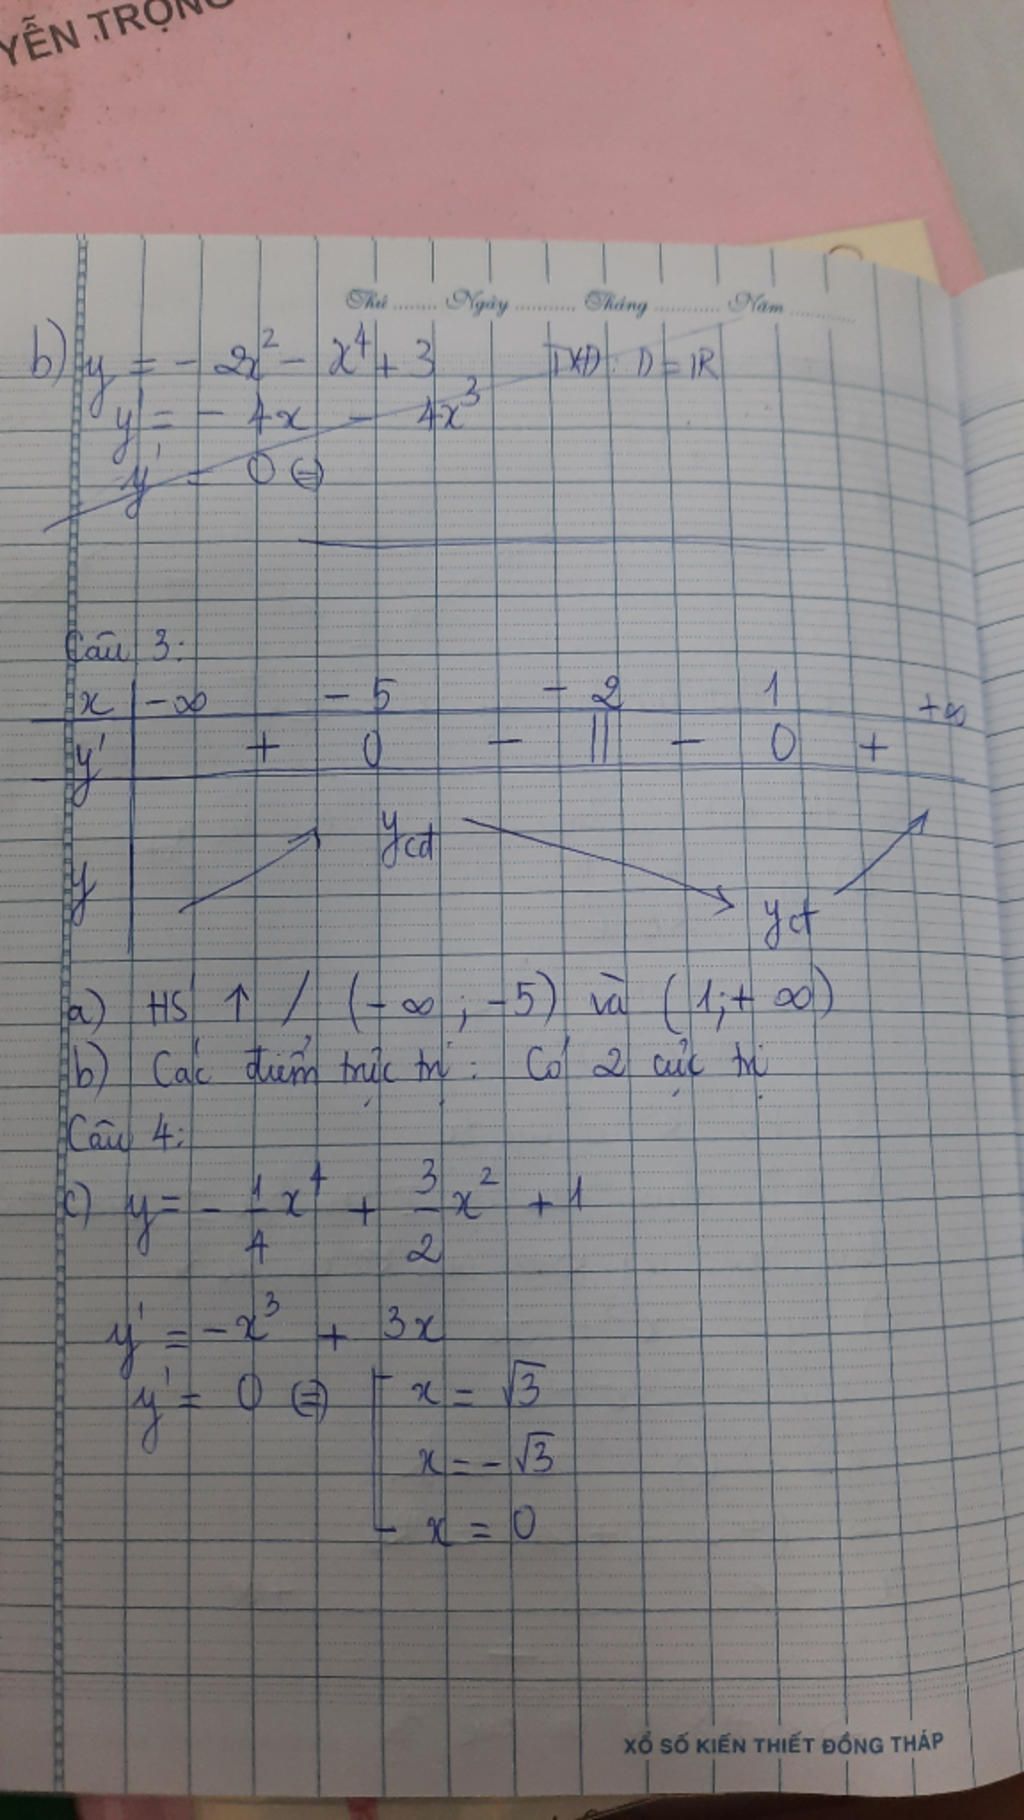 YỄN TRỌNG
Thứ ........ Ngày ........... Tháng ............ Năm ............
b) y = - 2x² - x⁴ + 3 TXĐ: D = ℝ
y' = - 4x - 4x³
y' = 0 ⇔
Câu 3:
x -∞ - 5 - 2 1 +∞
y' + 0 - || - 0 +
ycđ
y
yct
a) HS ↑ / (-∞; -5) và (1; +∞)
b) Các điểm trực trị: Có 2 cực trị
Câu 4:
c) y = - 1/4 x⁴ + 3/2 x² + 1
y' = -x³ + 3x
y' = 0 ⇔ [ x = √3
x = -√3
x = 0
XỔ SỐ KIẾN THIẾT ĐỒNG THÁP